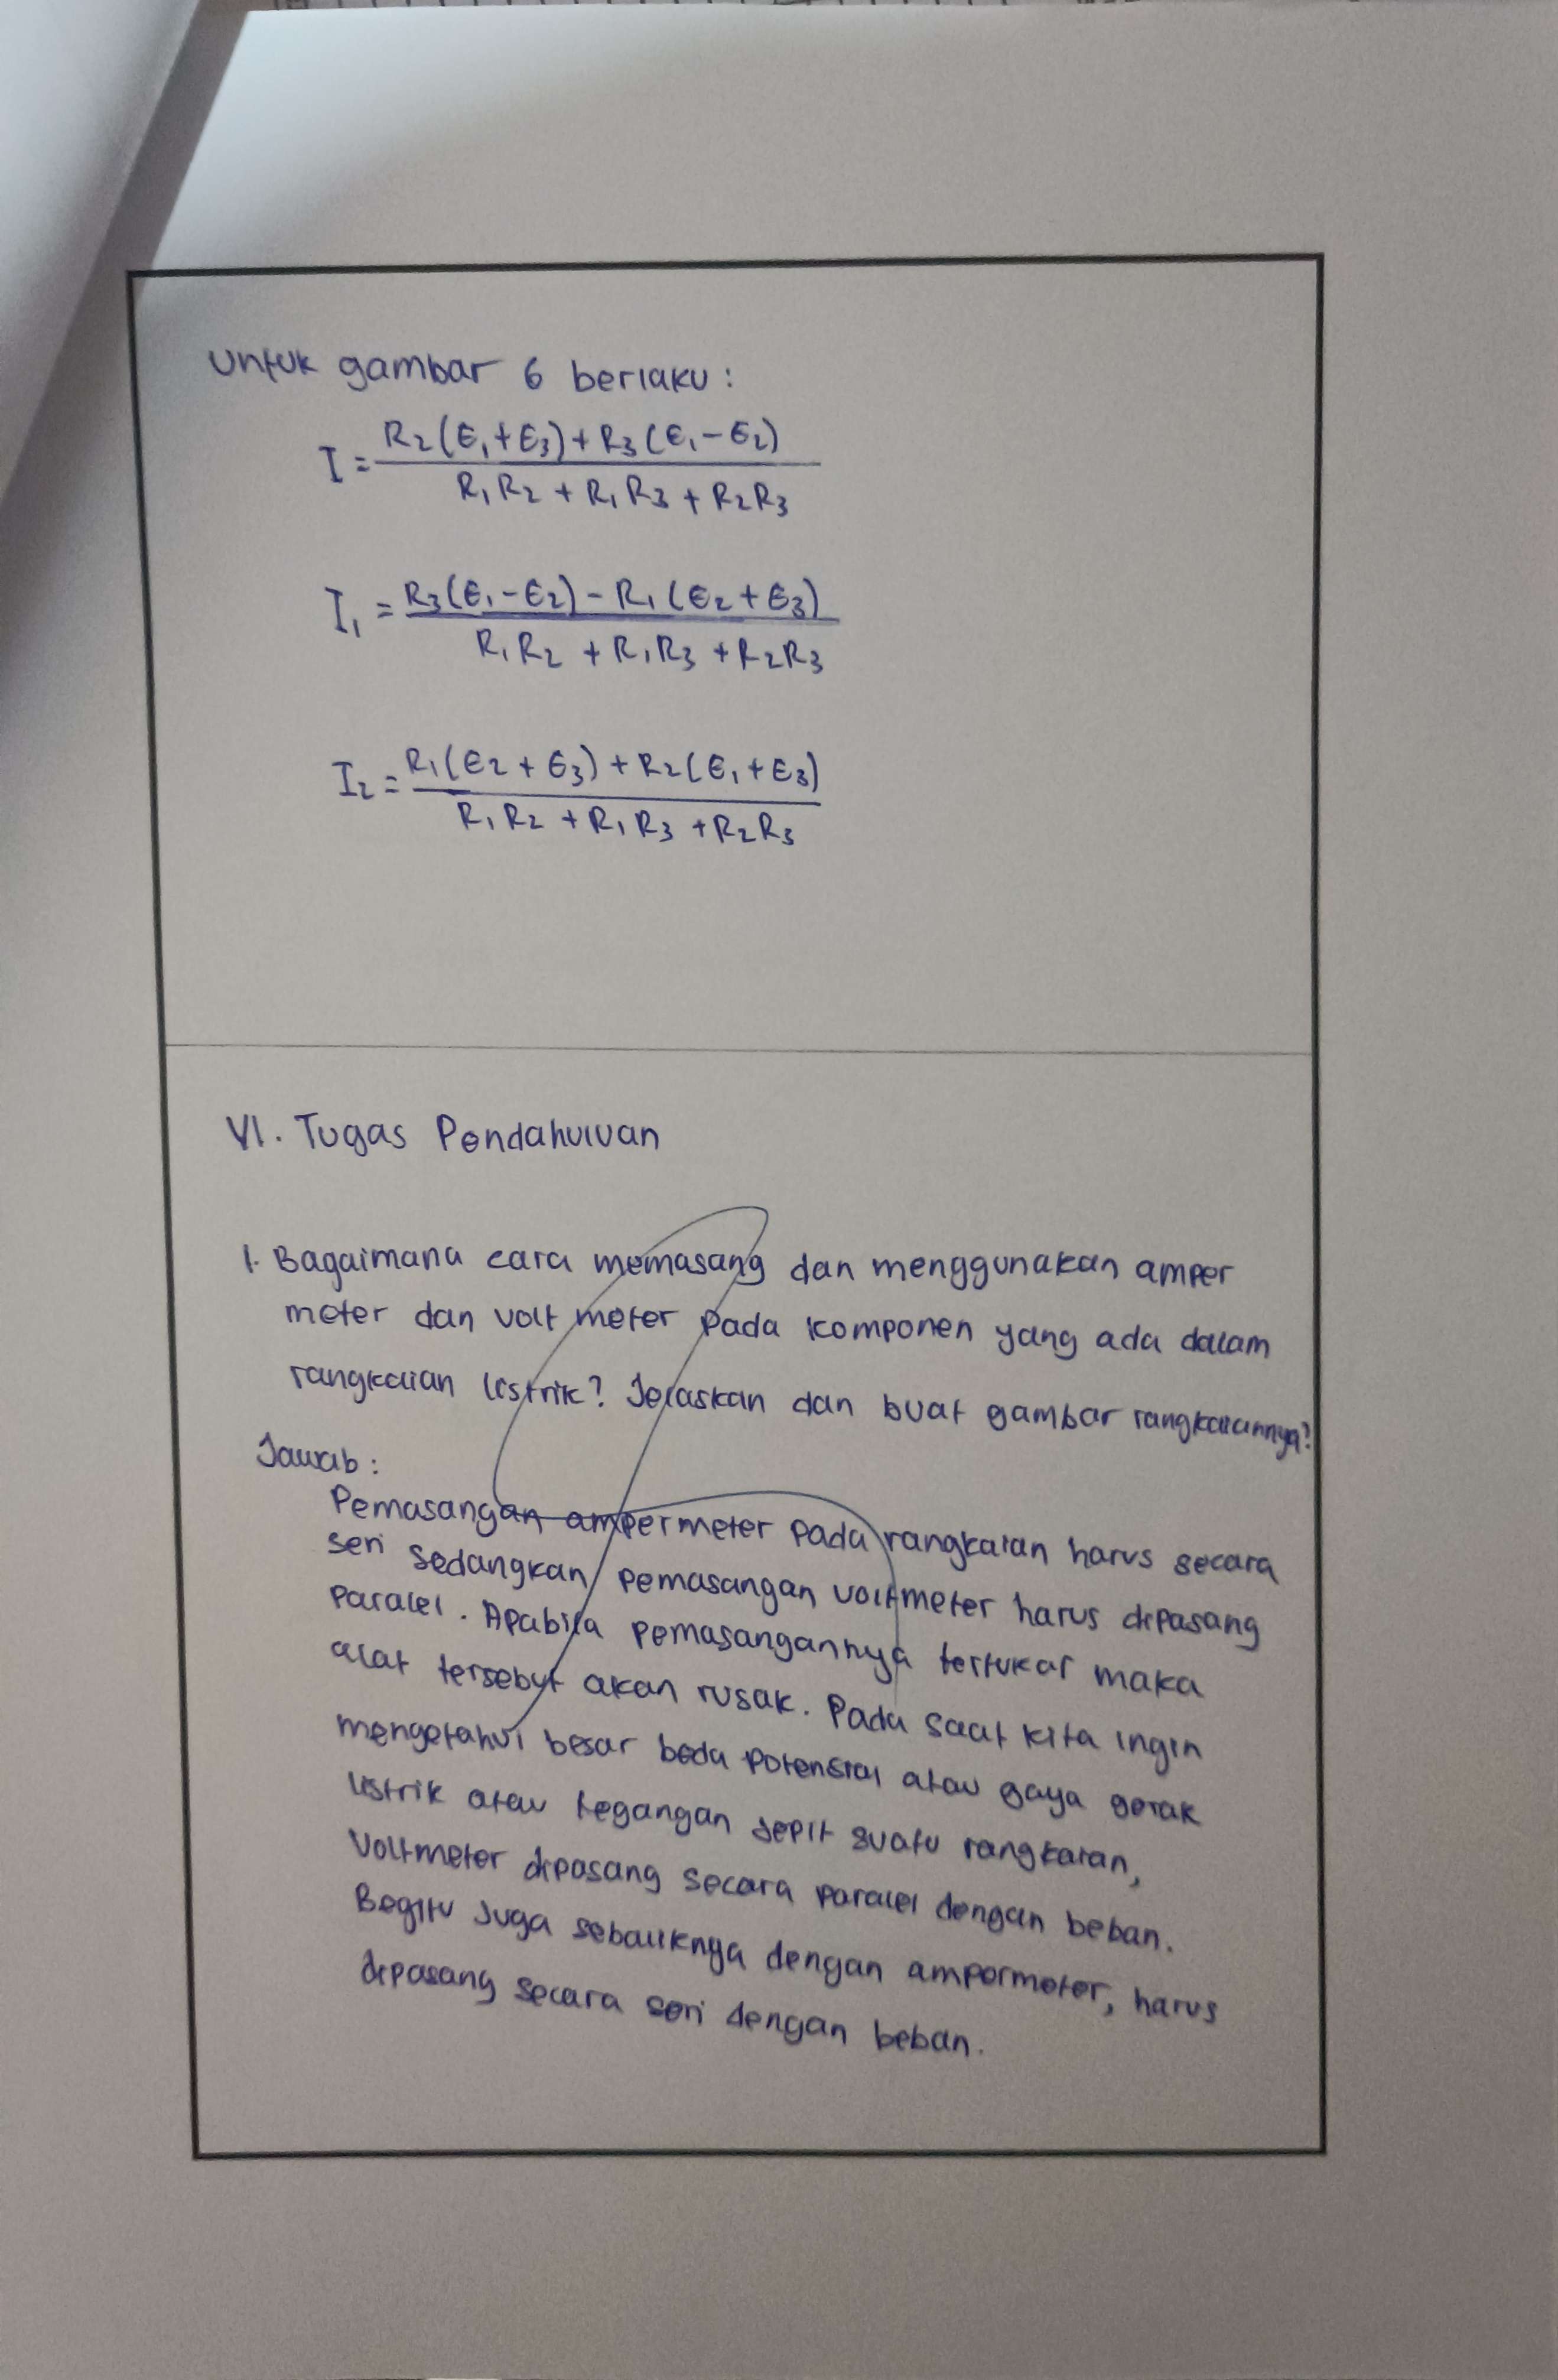 Untuk gambar 6 berlaku :
I = R₂(ε₁+ε₃)+R₃(ε₁-ε₂)
R₁R₂ + R₁R₃ + R₂R₃
I₁ = R₃(ε₁-ε₂) - R₁(ε₂+ε₃)
R₁R₂ + R₁R₃ + R₂R₃
I₂ = R₁(ε₂+ε₃) + R₂(ε₁+ε₃)
R₁R₂ + R₁R₃ + R₂R₃
VI. Tugas Pendahuluan
1. Bagaimana cara memasang dan menggunakan amper
meter dan volt meter pada komponen yang ada dalam
rangkaian listrik? Jelaskan dan buat gambar rangkaiannya?
Jawab :
Pemasangan ampermeter pada rangkaian harus secara
seri sedangkan pemasangan voltmeter harus dipasang
paralel. Apabila pemasangannya tertukar maka
alat tersebut akan rusak. Pada saat kita ingin
mengetahui besar beda potensial atau gaya gerak
listrik atau tegangan jepit suatu rangkaian,
Voltmeter dipasang secara paralel dengan beban.
Begitu juga sebaliknya dengan ampermeter, harus
dipasang secara seri dengan beban.